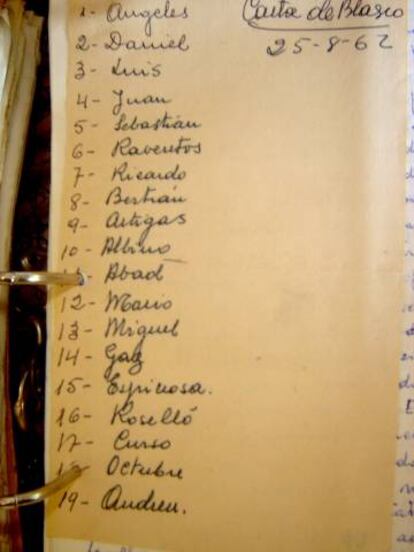 Carta de Blasco
25-8-62
1- Angeles
2- Daniel
3- Luis
4- Juan
5- Sebastián
6- Raventos
7- Ricardo
8- Bertrán
9- Artigas
10- Albino
11- Abad
12- Mario
13- Miguel
14- Gaz
15- Espinosa.
16- Roselló
17- Curso
18- Octubre
19- Andreu.